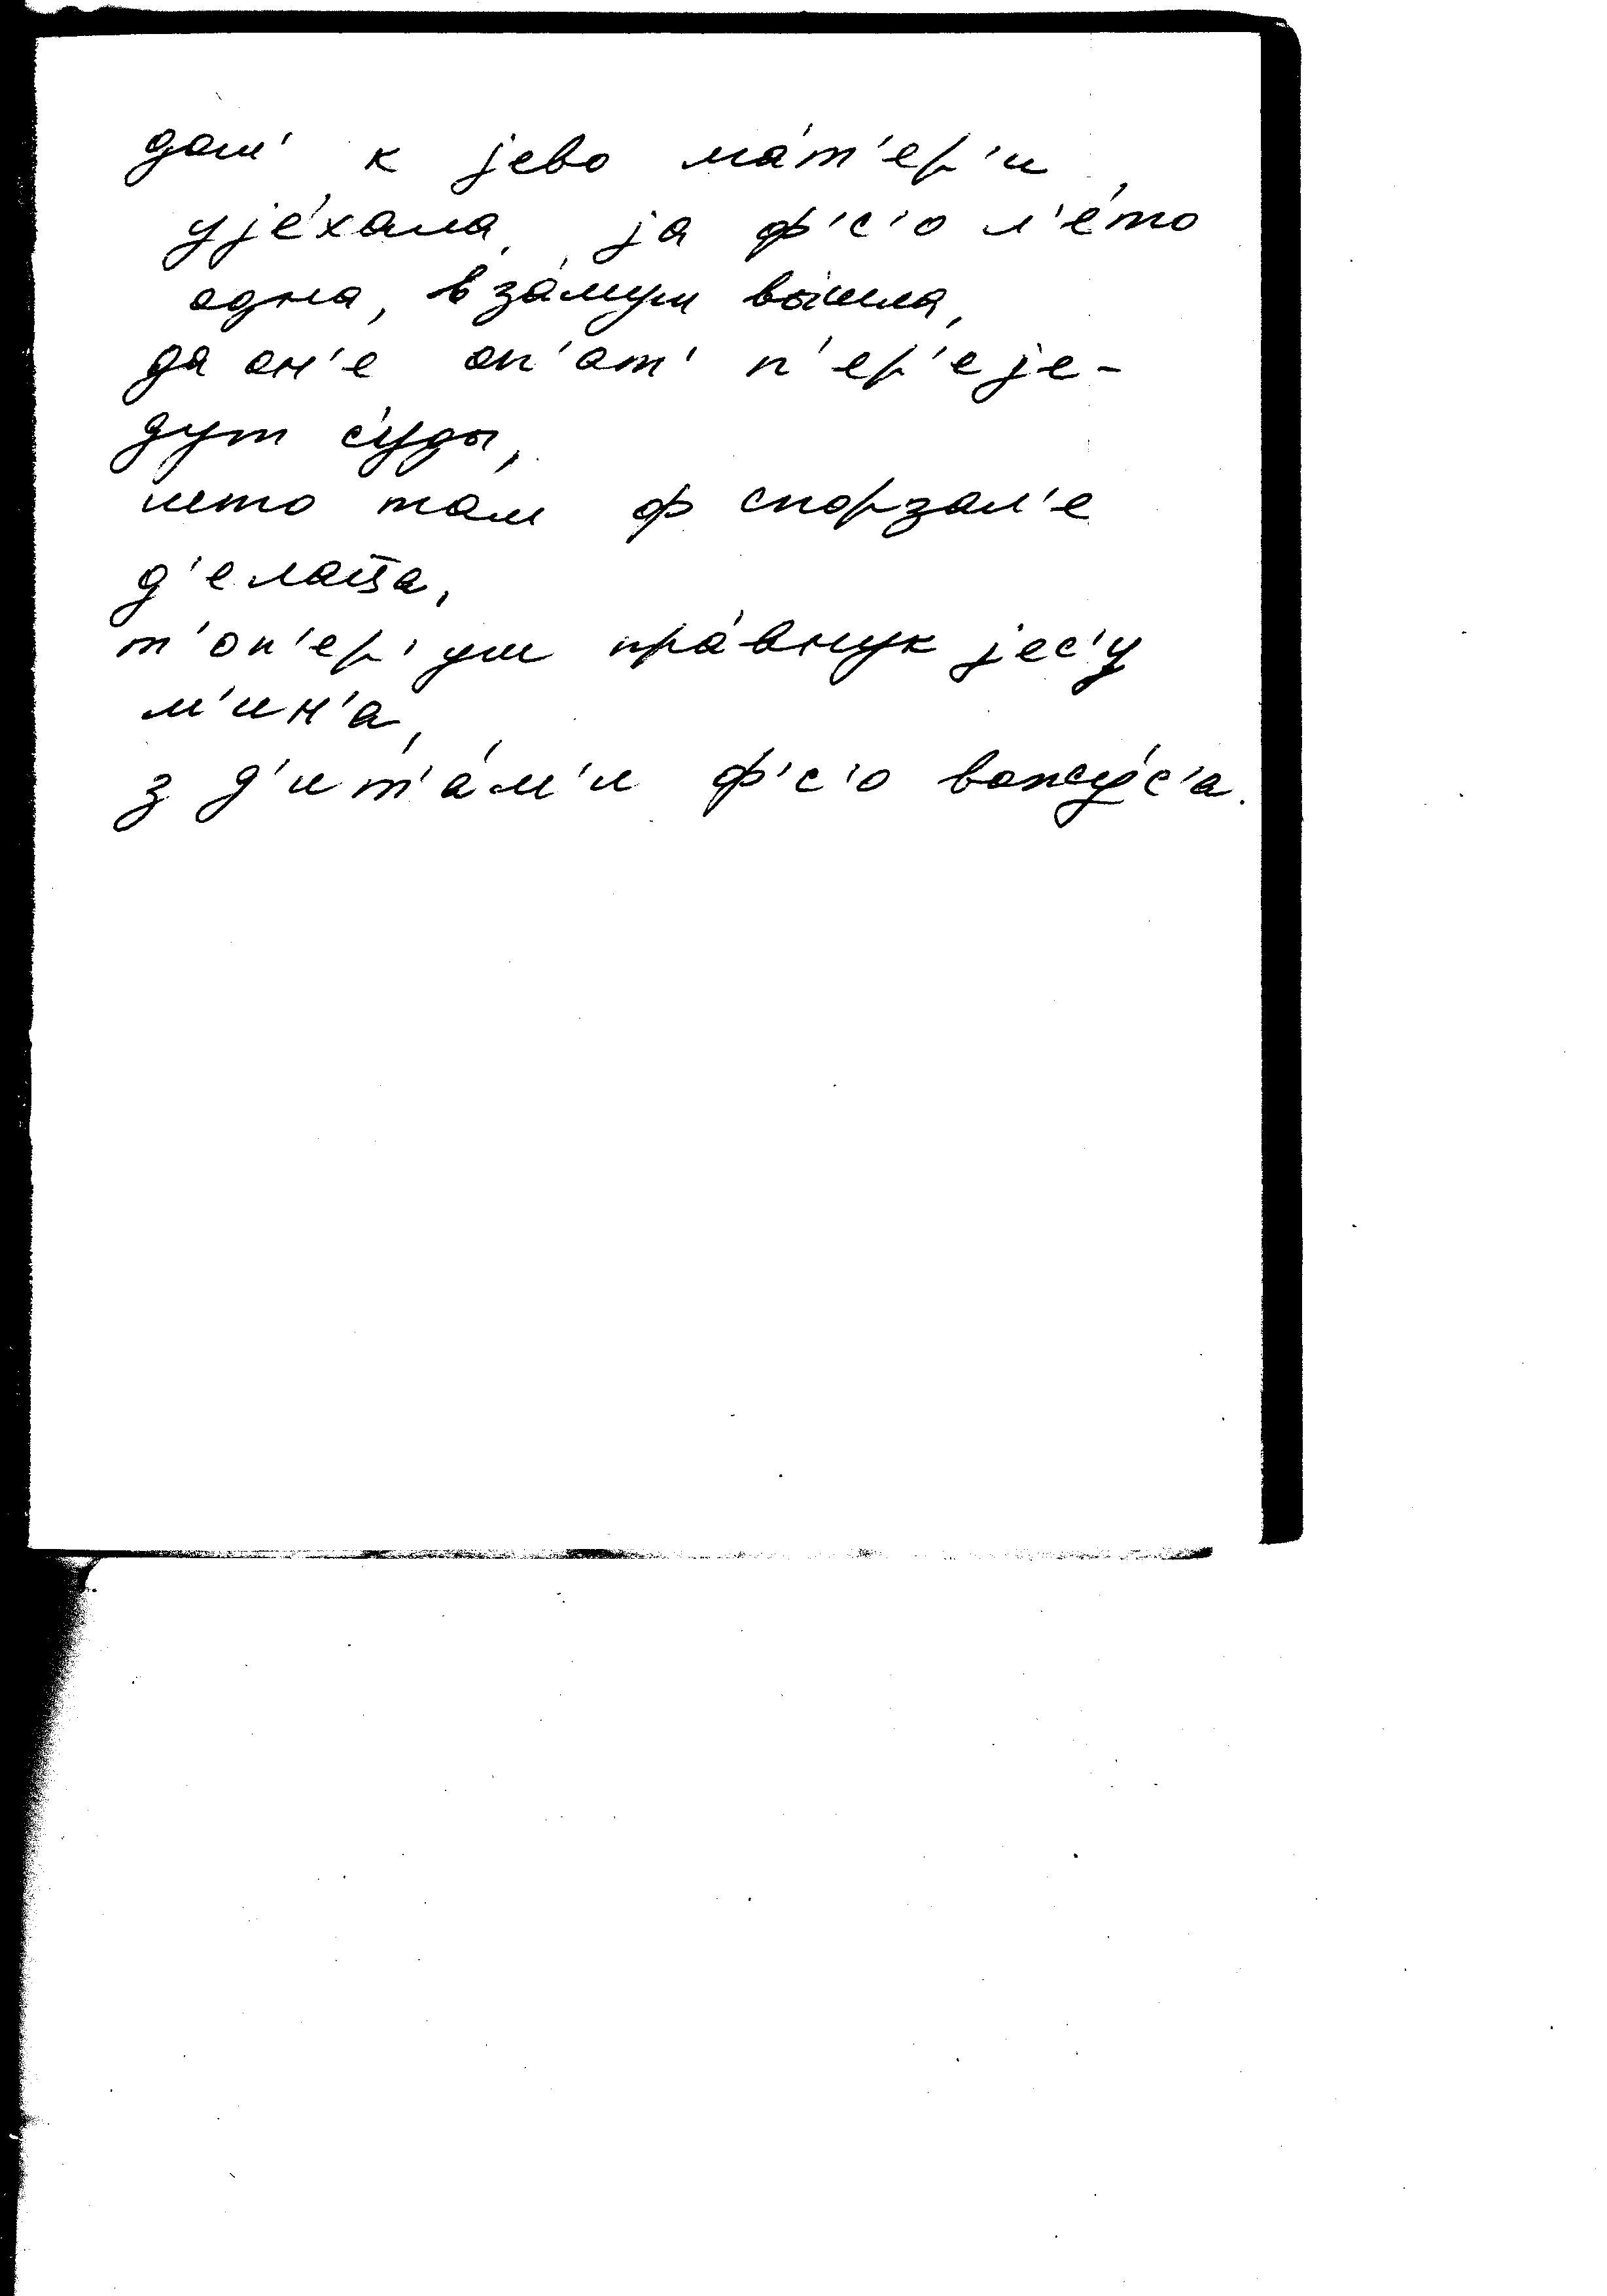 дом' к jево ма́т'ер'и
уjе́хала, jа ф'с'о л'е́то
одна, в за́муш вы́шла,
да он'е оп'ат' п'ер'еjе-
дут с'уды,
што там ф спорзал'е
д'елаτ̄ца,
т'оп'ер' уш пра́внук jес'у
м'ин'а,
з д'ит'а́м'и ф'с'о вожу́с'а.